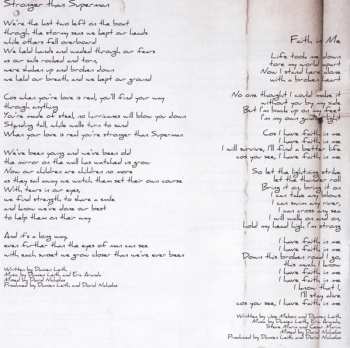 Stronger than Superman
We're the last two left on the boat
through the stormy seas we kept our heads
while others fell overboard
We held hands and waded through our fears
as our sails rocked and torn,
were shaken up and broken down
we held our breath and we kept our ground
Cos when your love is real, you'll find your way
through anything
You're made of steel, no hurricanes will blow you down
Standing tall, while walls turn to sand
When your love is real you're stronger than Superman
We've been young and we've been old
the mirror on the wall has watched us grow
Now our children are children no more
as they sail away we watch them set their own course
With tears in our eyes,
we find strength to share a smile
and know we've done our best
to help them on their way
And it's a long way,
even further than the eyes of man can see
with each sunset we grow closer than we've ever been
Written by Damien Leith
Music by Damien Leith and Eric Aranda
Mixed by David Nicholas
Produced by Damien Leith and David Nicholas
Faith in Me
Life took me down
tore my world apart
Now I stand here alone
with a broken heart
No one thought I could make it
without you by my side
But I'm back on my feet
I'm my own guiding light
Cos I have faith in me
I have faith in me
I will survive, I'll find a better life
cos you see, I have faith in me
So let the lightning strike
let the thunder roll
Bring it on, bring it on
I can take any blows
I can swim any river,
I can cross any sea
I will walk on and on,
hold my head high, I'm strong
I have faith in me
I have faith in me
Down this broken road I go,
this much I know
I have faith in me
I have faith in me
I know that I,
I'll stay alive
cos you see, I have faith in me
Written by and Damien Leith
Music by Damien Leith, Eric Aranda,
Steve Marin and Conor Marin
Mixed by David Nicholas
Produced by Damien Leith and David Nicholas